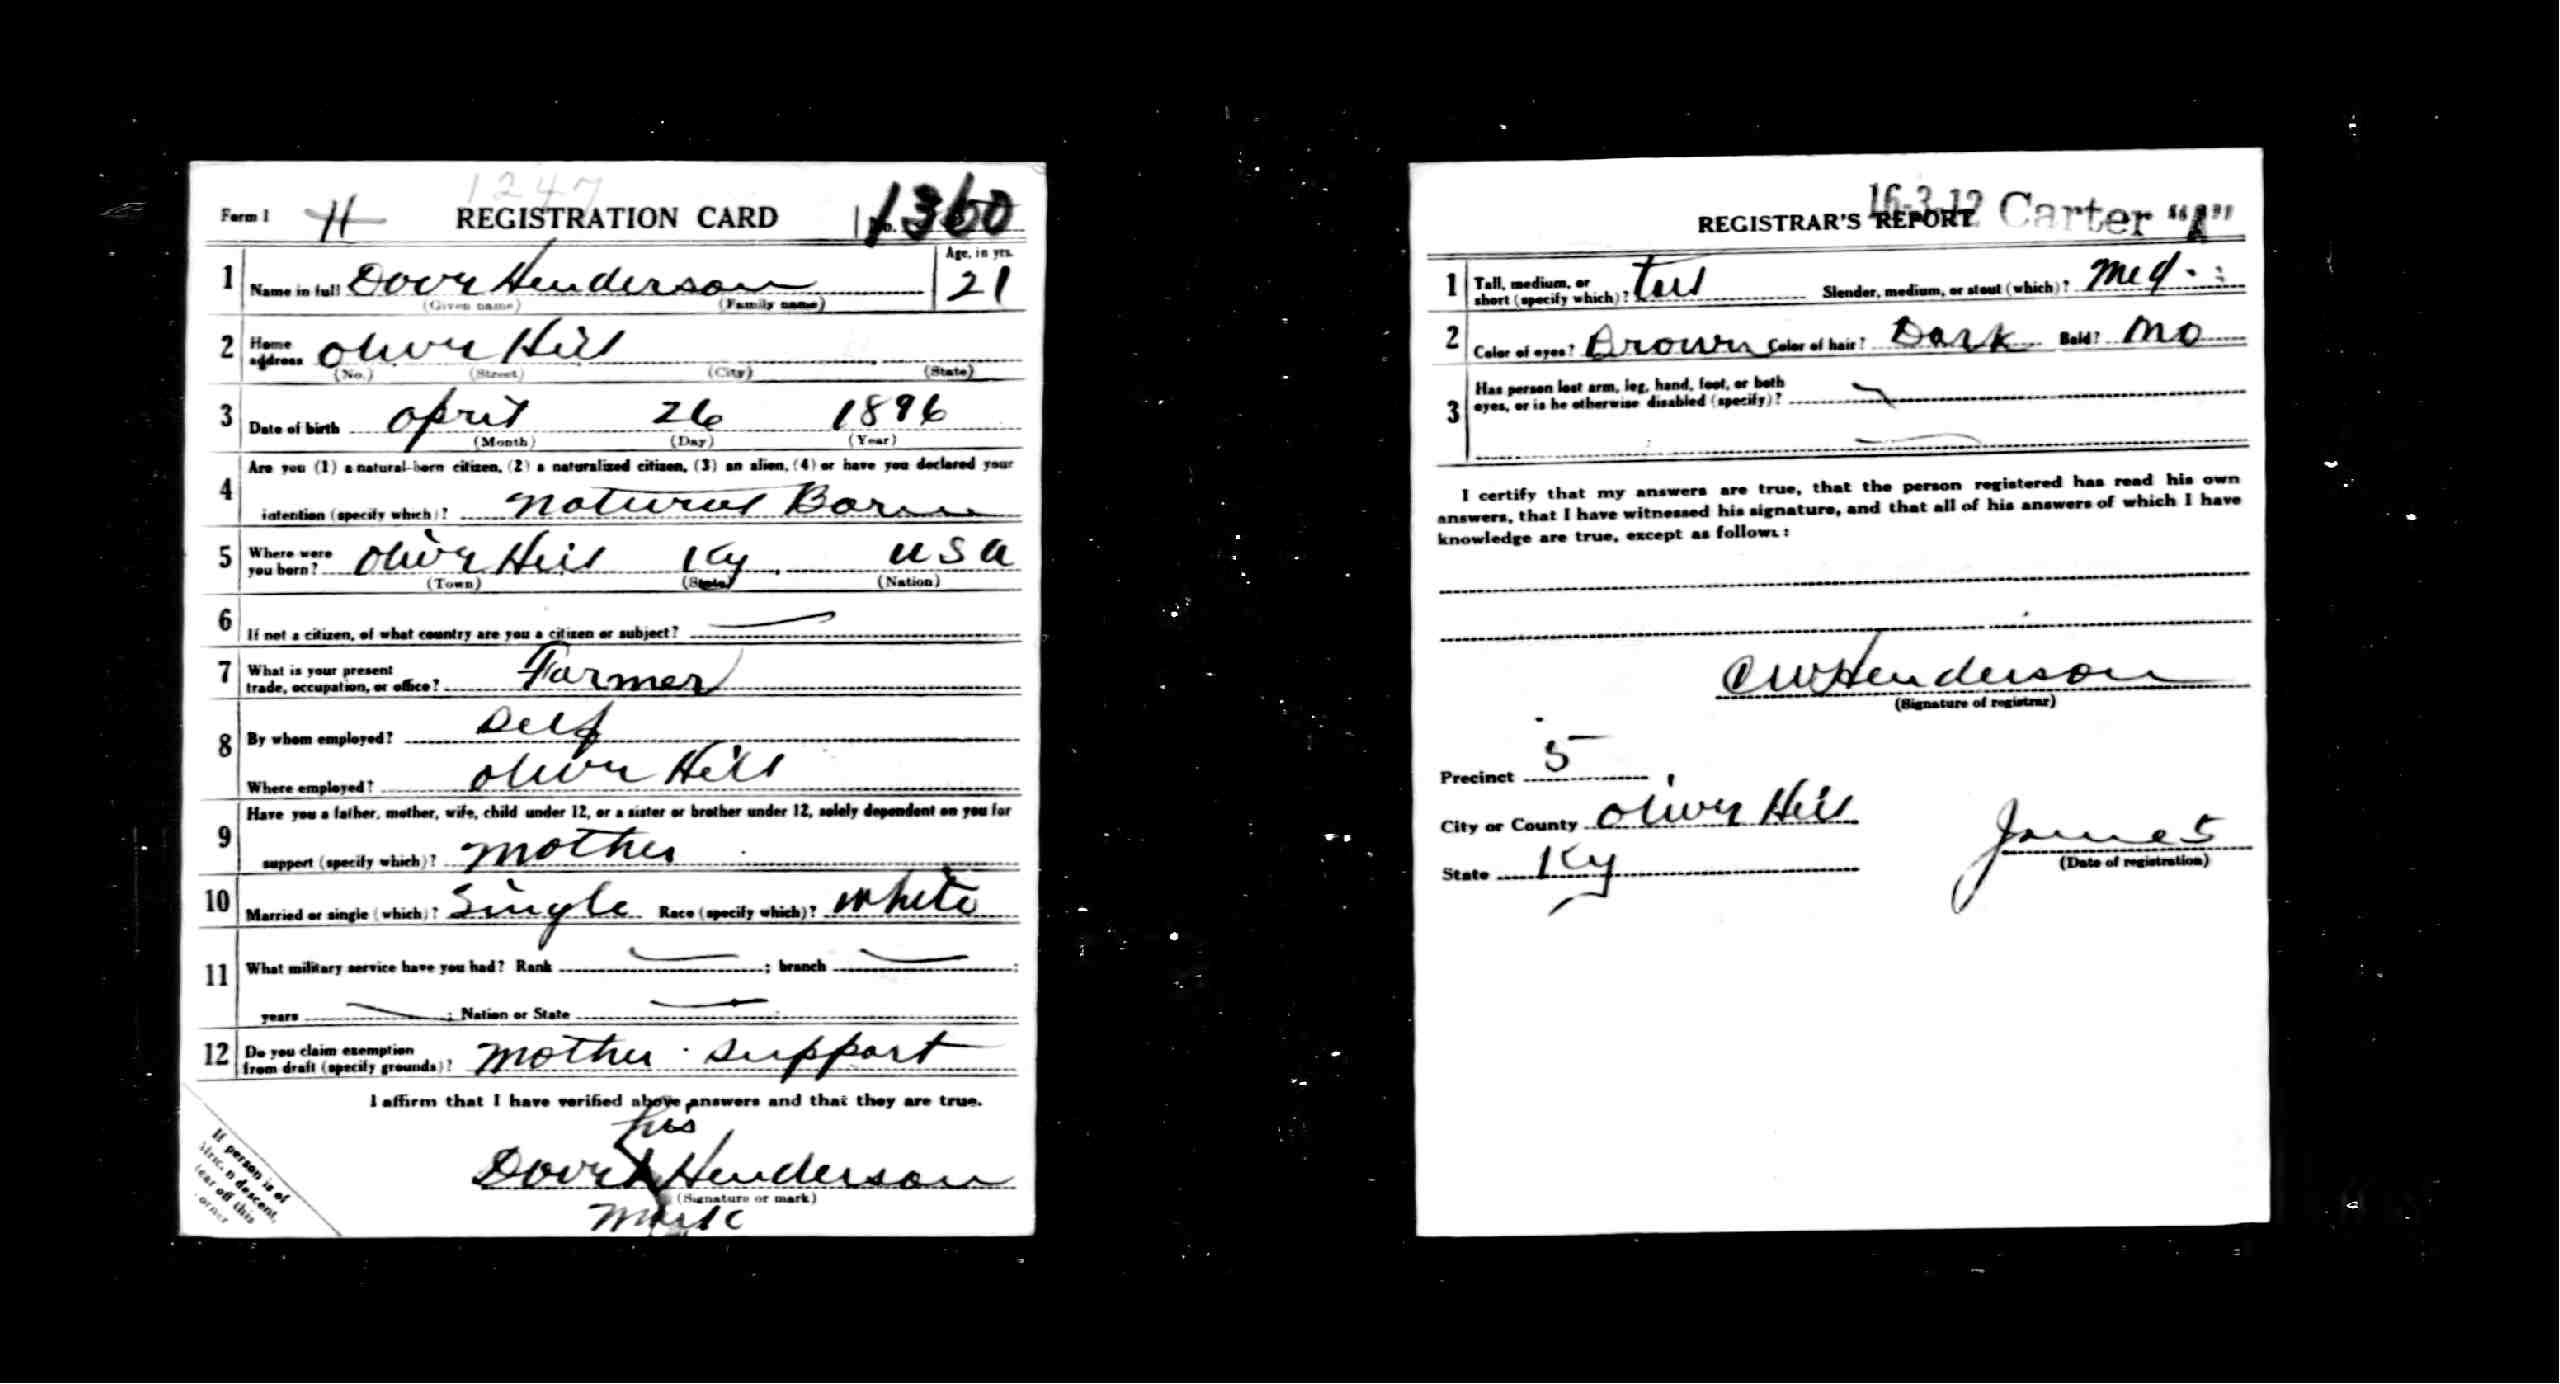 1247
Form 1 H REGISTRATION CARD No. 1360
1 Name in full Dover Henderson Age, in yrs. 21
(Given name) (Family name)
2 Home address Oliver Hill
(No.) (Street) (City) (State)
3 Date of birth April 26 1896
(Month) (Day) (Year)
4 Are you (1) a natural-born citizen, (2) a naturalized citizen, (3) an alien, (4) or have you declared your
intention (specify which)? Natural Born
5 Where were you born? Oliver Hill Ky USA
(Town) (State) (Nation)
6 If not a citizen, of what country are you a citizen or subject?
7 What is your present
trade, occupation, or office? Farmer
8 By whom employed? Self
Where employed? Oliver Hill
9 Have you a father, mother, wife, child under 12, or a sister or brother under 12, solely dependent on you for
support (specify which)? Mother
10 Married or single (which)? Single Race (specify which)? White
11 What military service have you had? Rank ; branch ;
years ; Nation or State
12 Do you claim exemption
from draft (specify grounds)? Mother support
I affirm that I have verified above answers and that they are true.
his
Dover X Henderson
(Signature or mark)
Mark
If person is of
descent,
tear off this
corner
16-3-12 Carter "A"
REGISTRAR'S REPORT
1 Tall, medium, or
short (specify which)? Tall Slender, medium, or stout (which)? Med.
2 Color of eyes? Brown Color of hair? Dark Bald? No
3 Has person lost arm, leg, hand, foot, or both
eyes, or is he otherwise disabled (specify)?
I certify that my answers are true, that the person registered has read his own
answers, that I have witnessed his signature, and that all of his answers of which I have
knowledge are true, except as follows:
CW Henderson
(Signature of registrar)
Precinct 5
City or County Oliver Hill
State Ky
June 5
(Date of registration)